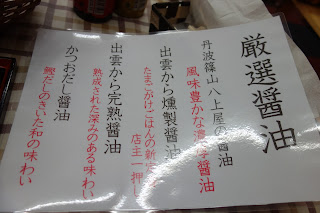 厳選醤油
丹波篠山 八上屋の醤油
風味豊かな濃厚醤油
出雲から燻製醤油
たまごかけごはんの新
店主一押し
出雲から完熟醤油
熟成された深みのある味わい
かつおだし醤油
鰹だしのきいた和の味わい